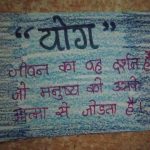 “ योग ”
जीवन का वह दर्शन है
जो मनुष्य को उसकी
आत्मा से जोडता है।